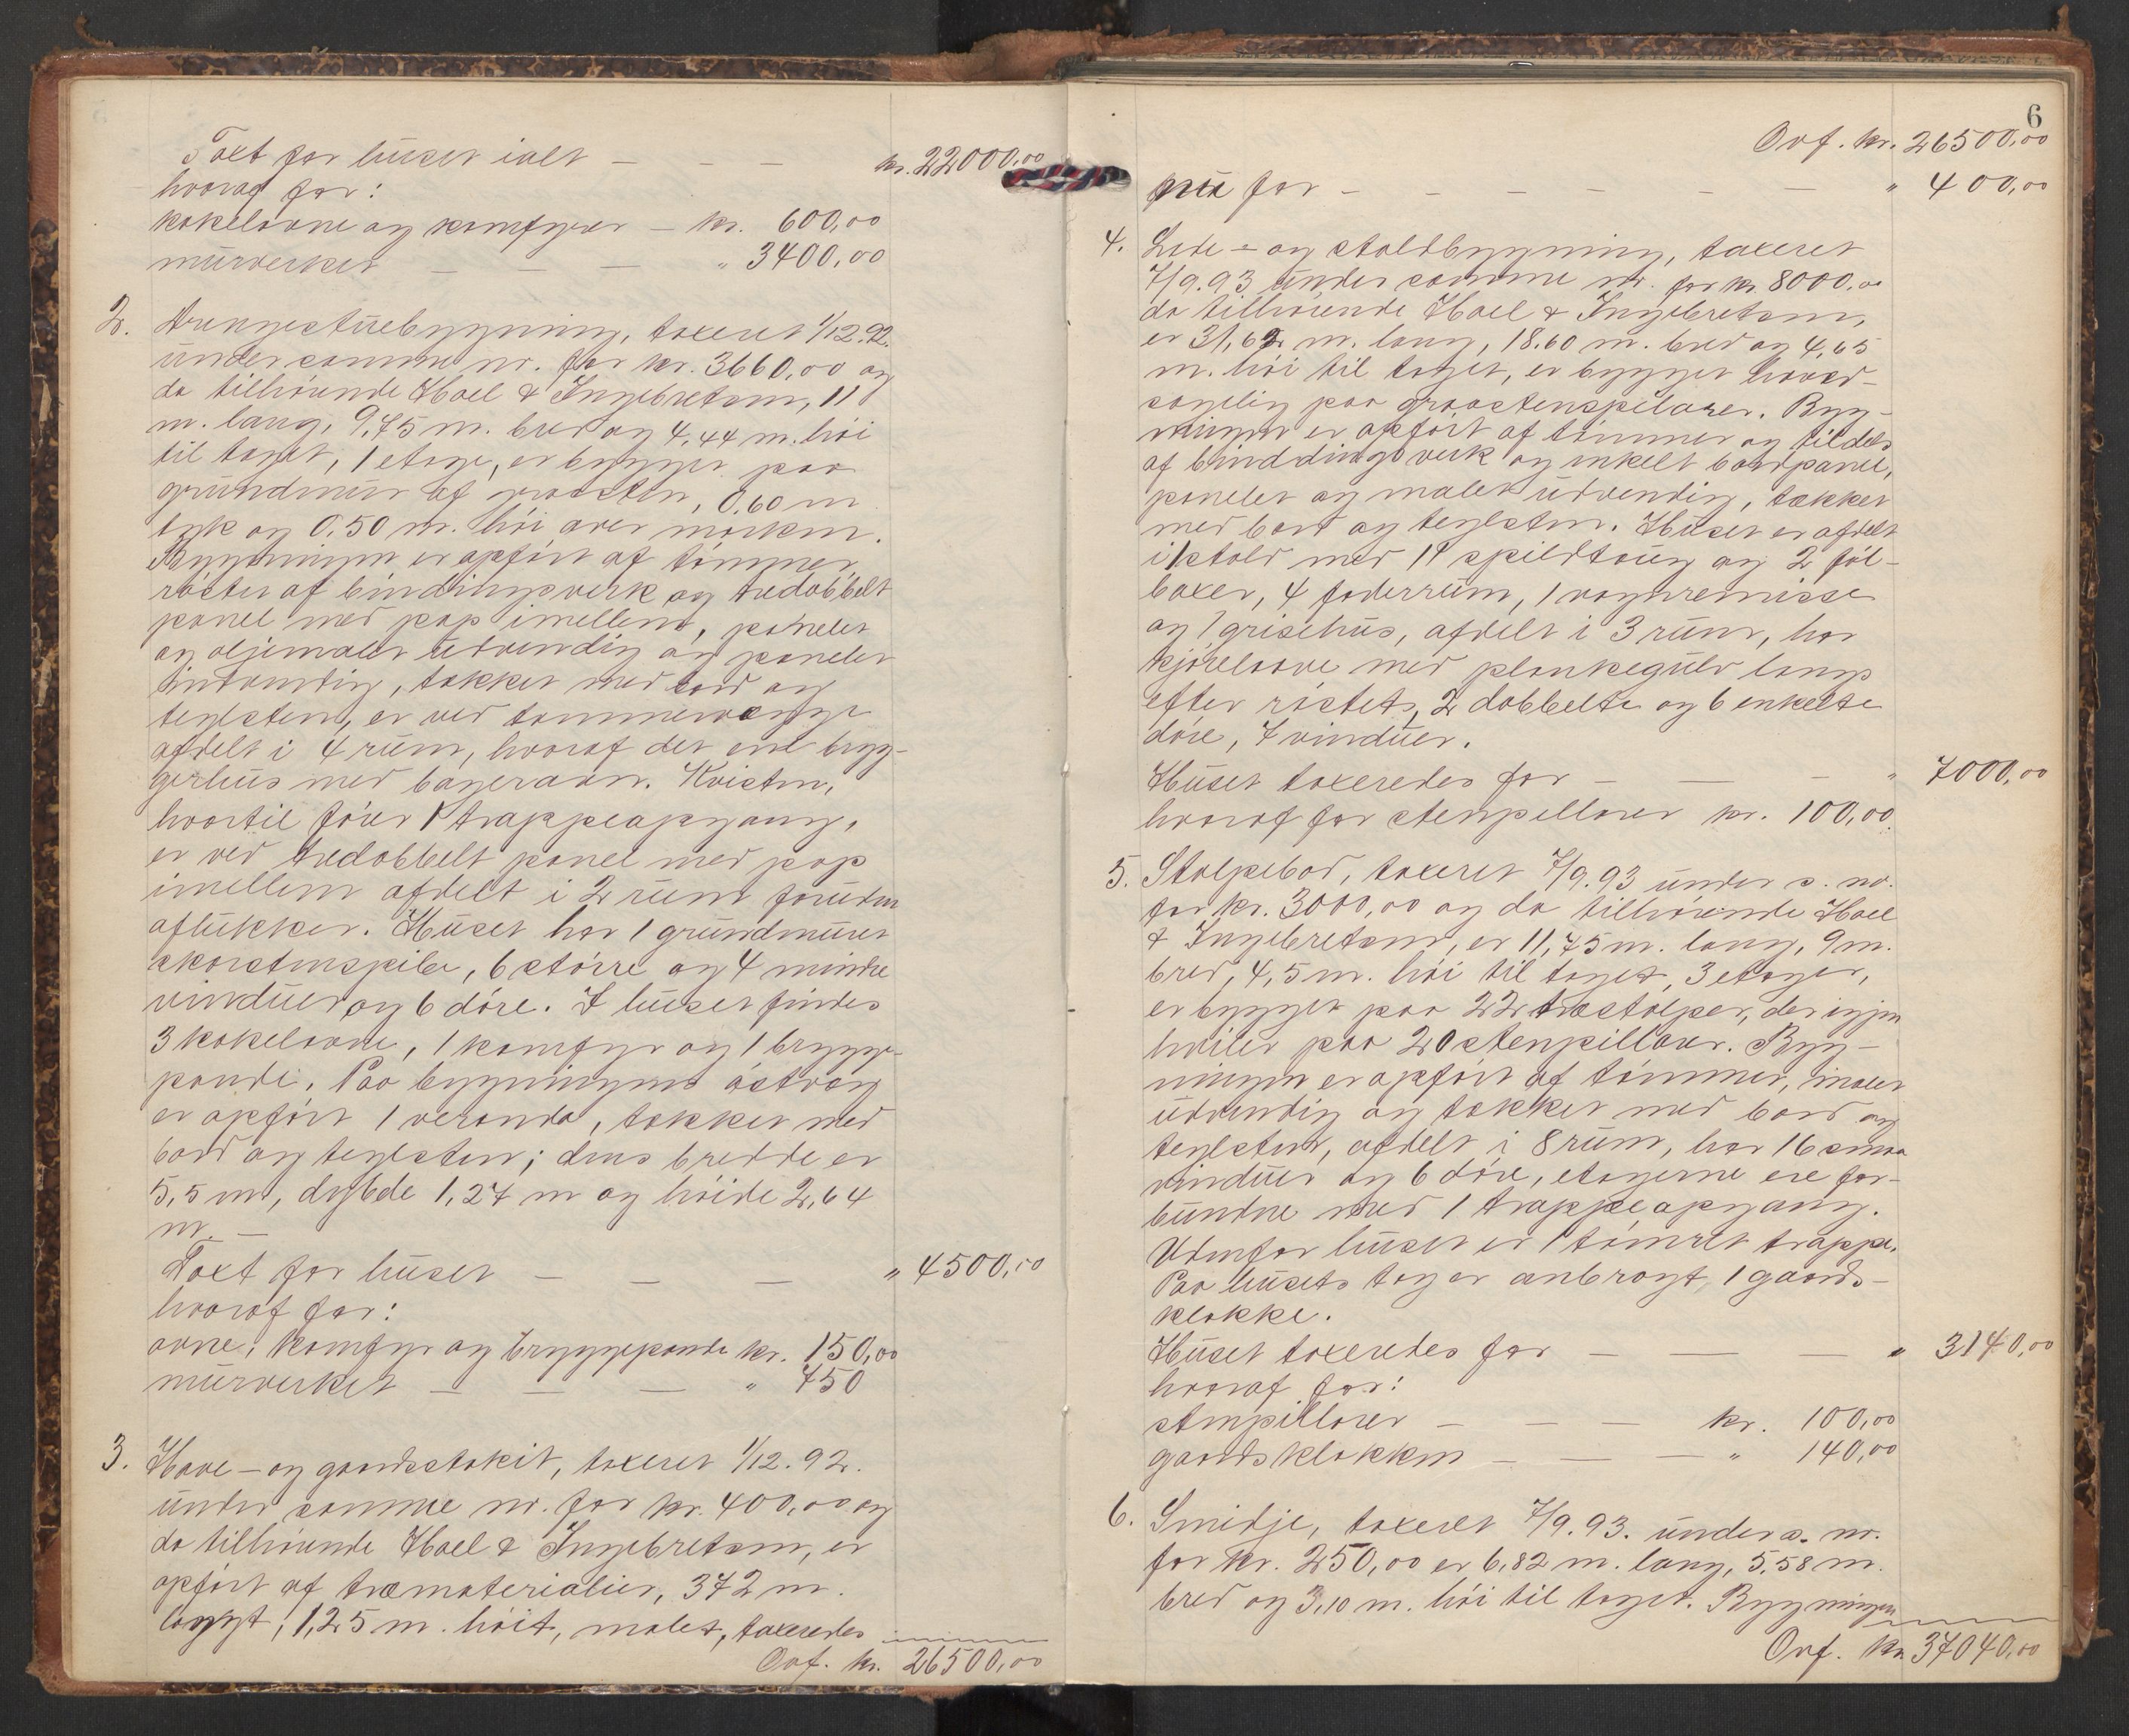 Taxt for huset ialt — — — kr. 22000,00
hvoraf for:
kakelovne og komfyrer — kr. 600,00
murverket — — — " 3400,00
2. Drengestuebygning, taxeret 1/12.92.
under samme nr. for kr. 3660,00 og
da tilhörende Hoel & Ingebretsen, 11
m. lang, 9,75 m. bred og 4,44 m. höi
til taget, 1 etage, er bygget paa
grundmur af graasten, 0,60 m
tyk og 0,50 m. höi over marken.
Bygningen er opfört af tömmer,
röster af bindingsverk og tredobbelt
panel med pap imellem, panelet
og oljemalet udvendig og panelet
indvendig, takket med bord og
teglsten, er ved tømmervægge
afdelt i 4 rum, hvoraf det ene bryg-
gerhus med bagerovn. Kvisten,
hvortil förer 1 trappeopgang,
er ved tredobbelt panel med pap
imellem afdelt i 2 rum foruden
aflukker. Huset har 1 grundmuret
skorstenspibe, 6 större og 4 mindre
vinduer og 6 döre. I huset findes
3 kakelovne, 1 komfyr og 1 brygge-
pande. Paa bygningens östvæg
er opfört 1 veranda, takket med
bord og teglsten; dens bredde er
5,5 m, dybde 1,27 m og höide 2,64
m. —
Taxt for huset — — — " 4500,00
hvoraf for:
ovne, komfyr og bryggepande kr. 150,00
murverket — — — " 750
3. Have- og gaardsstakit, taxeret 1/12.92.
under samme nr. for kr. 400,00 og
da tilhörende Hoel & Ingebretsen, er
opfört af træmaterialier, 372 m.
langt, 1,25 m. höit, malet, taxeredes
Ovf. kr. 26500,00
6
Ovf. kr. 26500,00
for — — — — — — " 400,00
4. Lade- og staldbygning, taxeret
7/9.93 under samme nr. for kr. 8000,00
da tilhörende Hoel & Ingebretsen,
er 31,62 m. lang, 18.60 m. bred og 4,65
m. höi til taget, er bygget hoved-
sagelig paa graastenspilarer. Byg-
ningen er opfört af tömmer og tildels
af binddingsverk og enkelt bordpanel,
panelet og malet udvendig, takket
med bord og teglsten. Huset er afdelt
i 1 stald med 19 spildtoug og 2 föl-
boxer, 4 foderrum, 1 vognremisse
og 1 grisehus, afdelt i 3 rum, har
kjörelaave med plankegulv langs
efter röstets, 2 dobbelte og 6 enkelte
döre, 7 vinduer.
Huset taxeredes for — — — " 7000,00
hvoraf for stenpillarer kr. 100,00.
5. Stolpebod, taxeret 7/9.93 under s. nr.
for kr. 3000,00 og da tilhörende Hoel
& Ingebretsen, er 11,75 m. lang, 9 m.
bred, 4,5 m. höi til taget, 3 etager,
er bygget paa 22 træstolper, der igjen
hviler paa 20 stenpillarer. Byg-
ningen er opfört af tömmer, malet
udvendig og takket med bord og
teglsten, afdelt i 8 rum, har 16 smaa
vinduer og 6 döre, etagerne ere for-
bundne med 1 trappeopgang.
Udenfor huset er 1 tömret trappe.
Paa husets tag er anbragt 1 gaards-
klokke.
Huset taxeredes for — — — " 3140,00
hvoraf for:
stenpillarer — — — kr. 100,00
gaardsklokken — — — " 140,00
6. Smidje, taxeret 7/9.93. under s. nr.
for kr. 250,00 er 6,82 m. lang, 5,58 m.
bred og 3,10 m. höi til taget. Bygningen
Ovf. kr. 37040,00